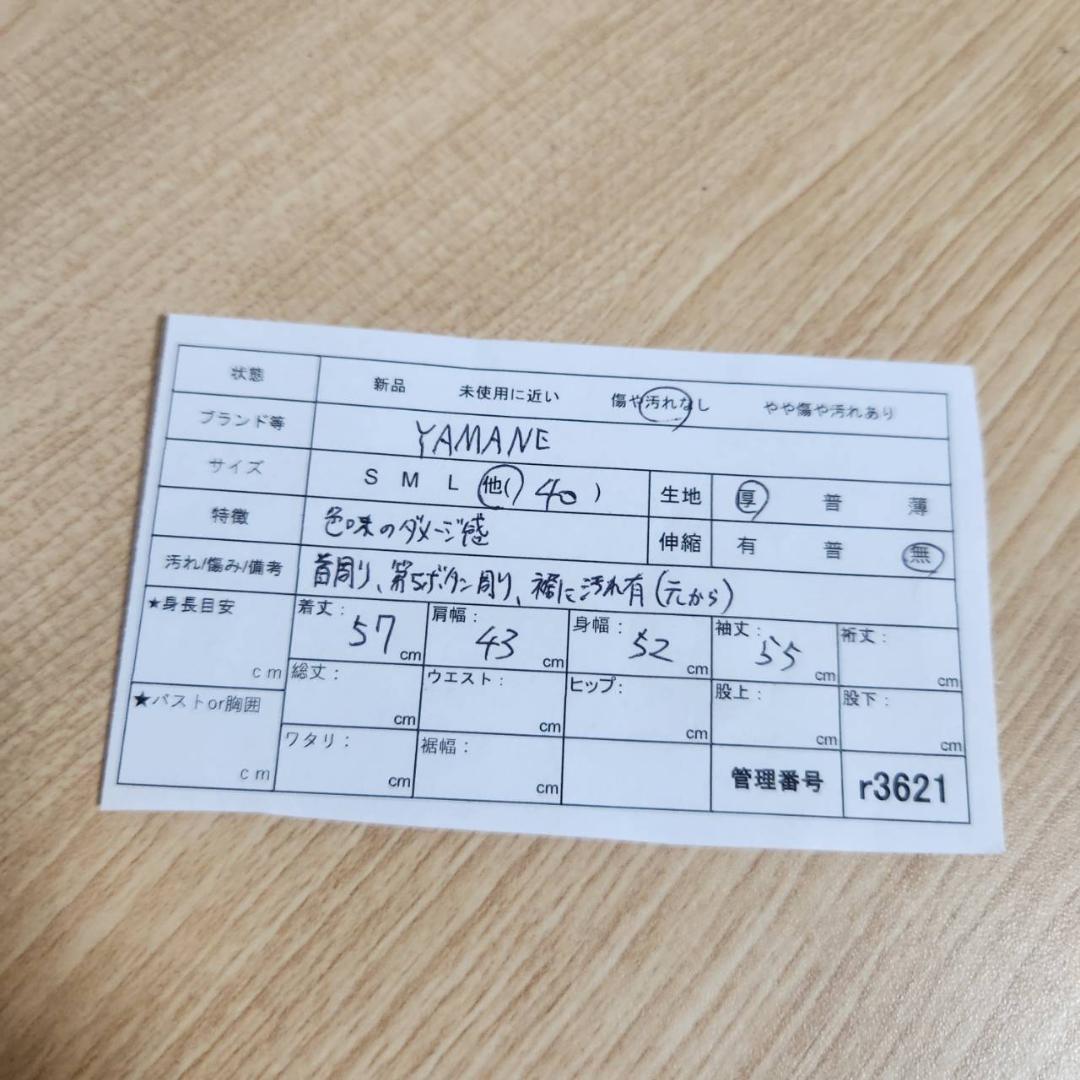 状態 新品 未使用に近い 傷や汚れなし やや傷や汚れあり
ブランド等 YAMANE
サイズ S M L 他( 40 ) 生地 厚 普 薄
特徴 色味のダメージ感 伸縮 有 普 無
汚れ/傷み/備考 首周り、第5ボタン周り、裾に汚れ有(元から)
★身長目安 cm 着丈: 57 cm 肩幅: 43 cm 身幅: 52 cm 袖丈: 55 cm 裄丈: cm
総丈: cm ウエスト: cm ヒップ: cm 股上: cm 股下: cm
★バストor胸囲 cm ワタリ: cm 裾幅: cm 管理番号 r3621